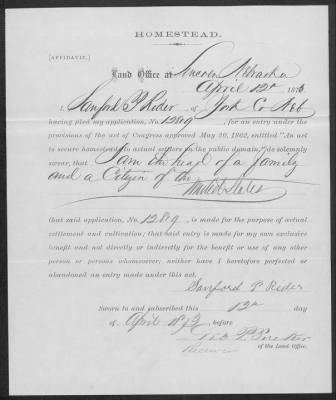 HOMESTEAD.
(AFFIDAVIT.)
Land Office at Lincoln Nebraska
April 12th 187
I, Sanford P Rider, of York Co Neb
having filed my application, No. 12819, for an entry under the
provisions of the act of Congress approved May 20, 1862, entitled "An act
to secure homesteads to actual settlers on the public domain," do solemnly
swear, that I am the head of a family
and a Citizen of the
United States
that said application, No. 12819, is made for the purpose of actual
settlement and cultivation; that said entry is made for my own exclusive
benefit and not directly or indirectly for the benefit or use of any other
person or persons whomsoever; neither have I heretofore perfected or
abandoned an entry made under this act.
Sanford P Rider
Sworn to and subscribed this 12th day
of April 1873 before
of the Land Office.
Receiver